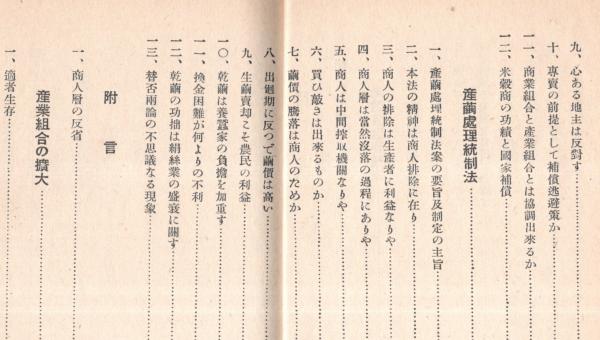 九、心ある地主は反對す
十、專賣の前提として補償逃避策か
一一、商業組合と產業組合とは協調出來るか
一二、米穀商の功績と國家補償
產繭處理統制法
一、產繭處理統制法案の要旨及制定の主旨
二、本法の精神は商人排除に在り
三、商人の排除は生產者に利益なりや
四、商人層は當然沒落の過程にありや
五、商人は中間搾取機關なりや
六、買ひ敲きは出來るものか
七、繭價の騰落は商人のためか
八、出廻期に反つて繭價は高い
九、生繭賣却こそ農民の利益
一〇、乾繭は養蠶家の負擔を加重す
一一、換金困難が何よりの不利
一二、乾繭の功拙は絹絲業の盛衰に關す
一三、贊否兩論の不思議なる現象
附言
一、商人層の反省
產業組合の擴大
一、適者生存